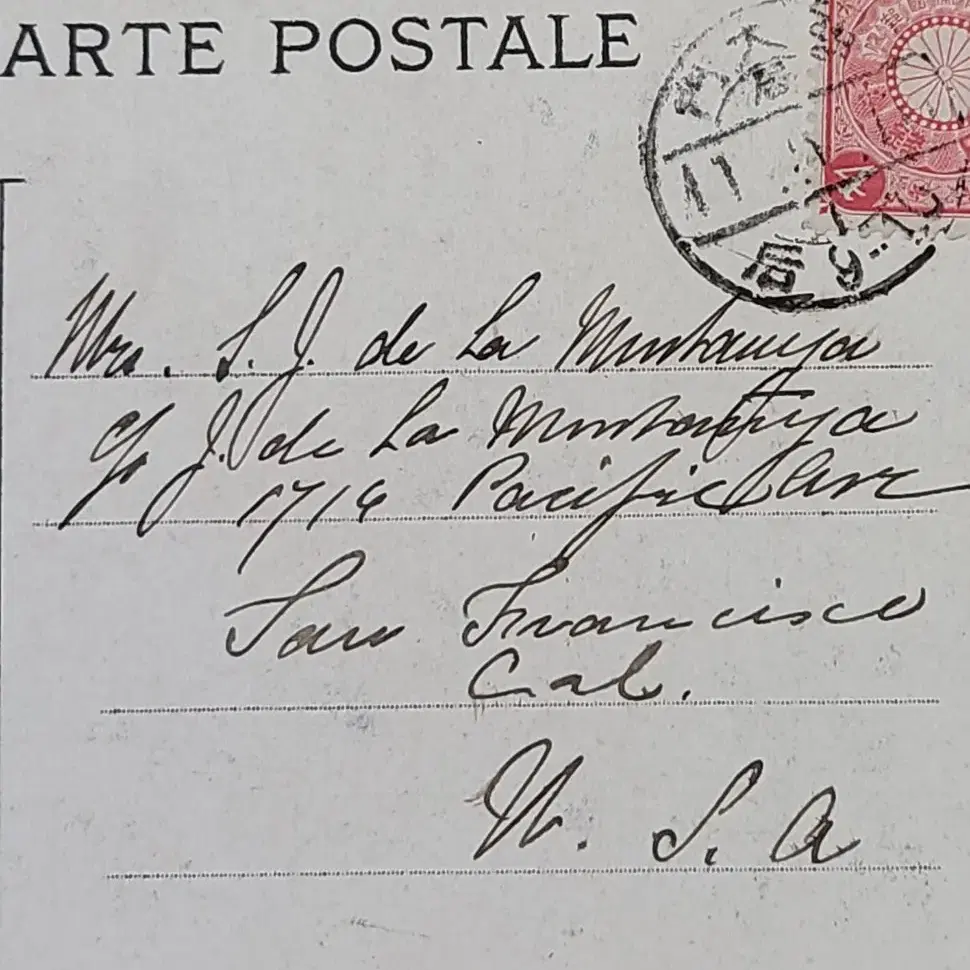 ARTE POSTALE
4
11
局
Mrs. S. J. de La Montanya
c/o J. de La Montanya
1716 Pacific Ave
San Francisco
Cal.
U. S. A